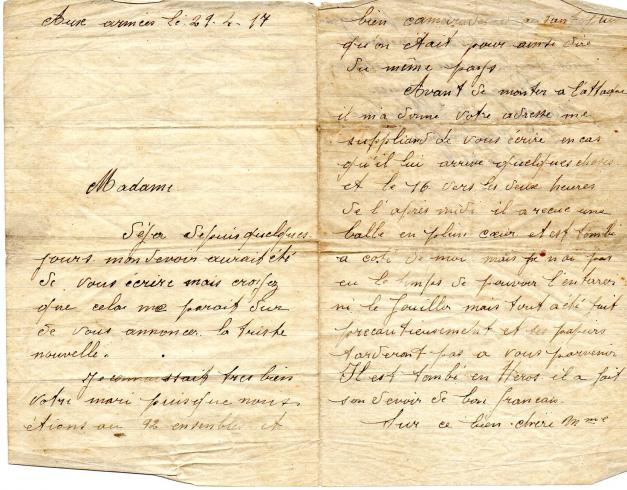 Aux armées le 29-4-17
Madame
Déja depuis quelques
jours mon devoir aurait été
de vous écrire mais croyez
que cela me parait dur
de vous annoncer la triste
nouvelle.
Je connaissait tres bien
votre mari puisque nous
étions au 92 ensembles et
bien camarades
qu'on était pour ainsi dire
du même pays
Avant de monter a l'attaque
il m'a donné votre adresse me
suppliant de vous écrire en cas
qu'il lui arrive quelques choses
et le 16 vers les deux heures
de l'après midi il a recue une
balle en plein cœur et est tombé
a coté de moi mais je n'ai pas
eu le temps de pouvoir l'enterrer
ni le fouiller mais tout a été fait
precautieusement et les papiers
tarderont pas a vous parvenir
Il est tombé en Heros il a fait
son devoir de bon francais.
Sur ce bien chère Mme